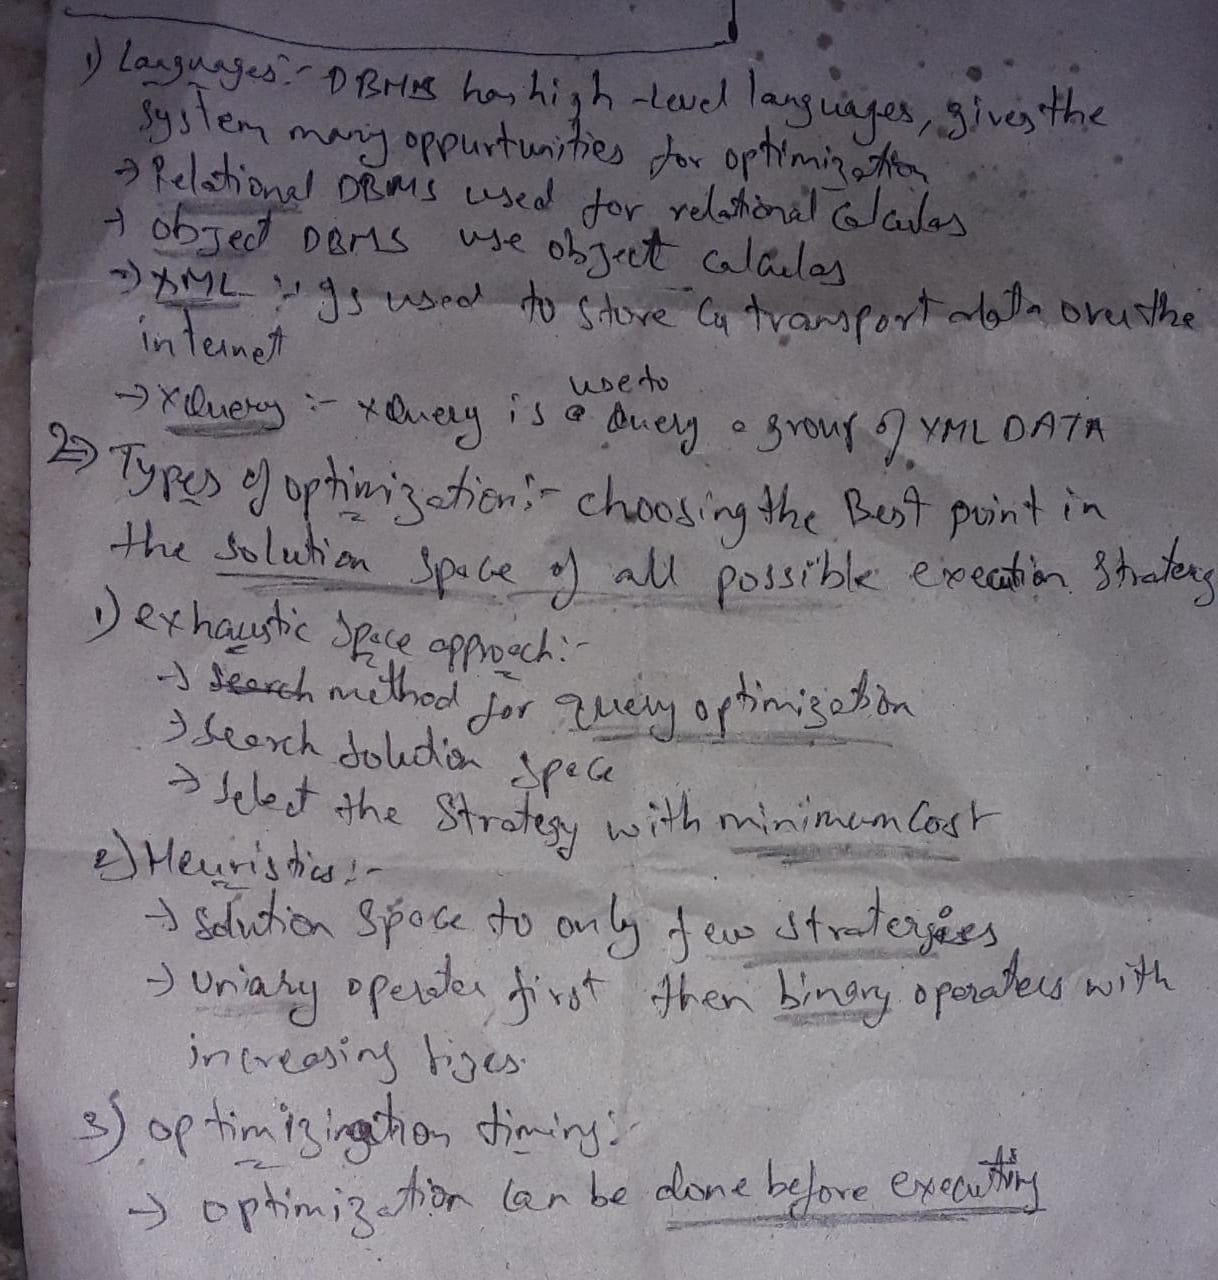 1) Languages:- DBMS has high-level languages, gives the
system many oppurtunities for optimization
→ Relational DBMS used for relational Calculas
→ object DBMS use object calculas
→ XML :- Is used to store & transport data over the
internet
use to
→ XQuery :- XQuery is a Query a group of XML DATA
2) Types of optimization:- choosing the Best point in
the solution space of all possible execution Stratery
1) exhaustic space approach:-
→ Search method for query optimization
→ Search solution space
→ select the Strategy with minimum Cost
2) Heuristics:-
→ Solution Space to only few stratergies
→ Uniary operater first then binary operaters with
increasing sizes.
3) optimizingtion timing:-
→ optimization can be done before executing